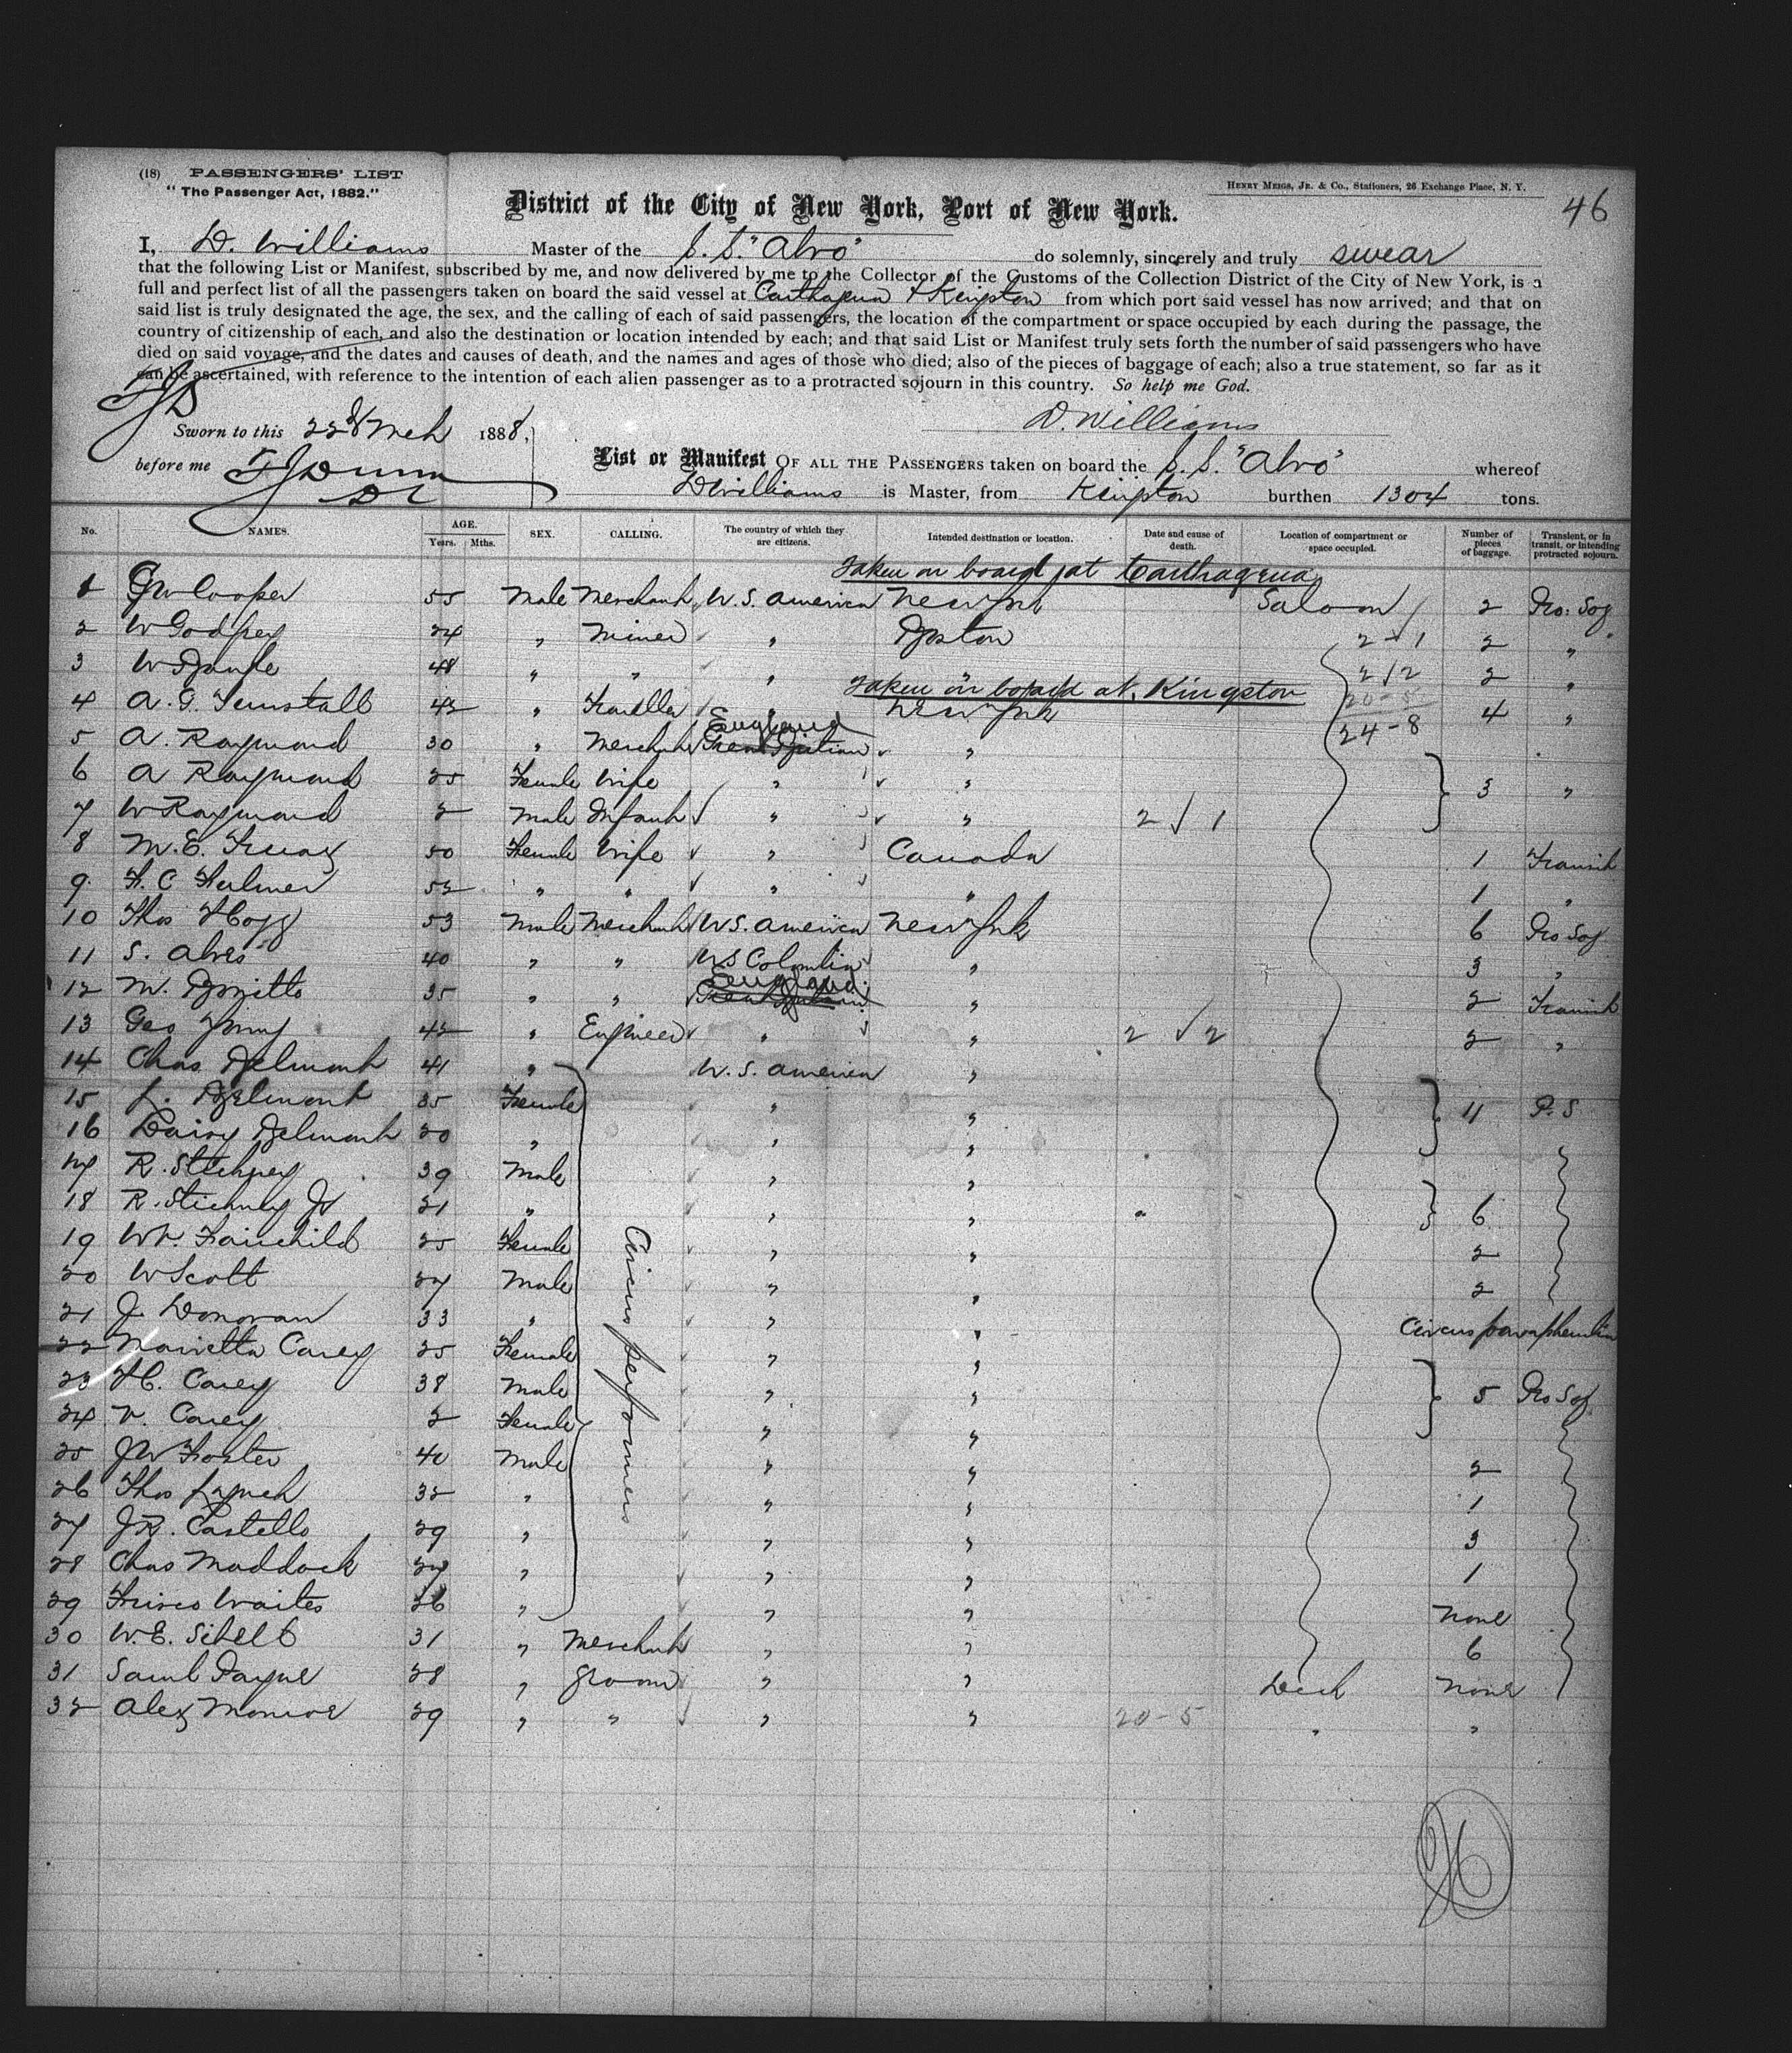 (18) PASSENGERS' LIST
"The Passenger Act, 1882."
HENRY MEIGS, JR. & CO., Stationers, 26 Exchange Place, N. Y.
46
District of the City of New York, Port of New York.
I, D. Williams Master of the S. S. "Alvo" do solemnly, sincerely and truly swear
that the following List or Manifest, subscribed by me, and now delivered by me to the Collector of the Customs of the Collection District of the City of New York, is a
full and perfect list of all the passengers taken on board the said vessel at Carthagena & Kingston from which port said vessel has now arrived; and that on
said list is truly designated the age, the sex, and the calling of each of said passengers, the location of the compartment or space occupied by each during the passage, the
country of citizenship of each, and also the destination or location intended by each; and that said List or Manifest truly sets forth the number of said passengers who have
died on said voyage, and the dates and causes of death, and the names and ages of those who died; also of the pieces of baggage of each; also a true statement, so far as it
can be ascertained, with reference to the intention of each alien passenger as to a protracted sojourn in this country. So help me God.
D. Williams
Sworn to this 22d Mch 1888,
before me F J Dunn
D C
List or Manifest OF ALL THE PASSENGERS taken on board the S. S. "Alvo" whereof
D Williams is Master, from Kingston burthen 1304 tons.
No. NAMES. AGE. Years. Mths. SEX. CALLING. The country of which they are citizens. Intended destination or location. Date and cause of death. Location of compartment or space occupied. Number of pieces of baggage. Transient, or in transit, or intending protracted sojourn.
Taken on board at Carthagena
1 Cooper 55 Male Merchant U. S. America New York Saloon 2 Pro: Soj
2 W Godfrey 24 " Miner " Boston 2 "
3 W 48 " " " " 2 "
Taken on board at Kingston
4 A. G. Tunstall 42 " Traveller " New York 24-8 4 "
5 A. Raymond 30 " Merchant England Great Britain "
6 A Raymond 25 Female Wife " " 3 "
7 W Raymond 2 Male Infant " " 2 √ 1
8 M. E. 50 Female Wife " Canada 1 Transit
9 F. C Fulmer 52 " " " " 1 "
10 Thos 53 Male Merchant U S. America New York 6 Pro Soj
11 S. Alves 40 " " U S Colombia " 3 "
12 M. 35 " " England Great Britain " 2 Transit
13 Geo 42 " Engineer " " 2 √ 2 2 "
14 Chas Belmont 41 " U. S. America "
15 L. Belmont 35 Female " " 11 P. S
16 Daisy Belmont 20 " " "
17 R. Stickney 39 Male " "
18 R. Stickney Jr 21 " " " 6
19 Fairchild 25 Female " " 2
20 W Scott 27 Male " " 2
Circus performers
21 J. Donovan 33 " " " Circus paraphernalia
22 Marietta Carey 25 Female " "
23 H C. Carey 38 Male " " 5 Pro Soj
24 V. Carey 2 Female " "
25 J W Foster 40 Male " " 2
26 Thos Lynch 32 " " " 1
27 J R. Castello 29 " " " 3
28 Chas Maddock 27 " " " 1
29 Frisco Waites 26 " " " None
30 W. E. 31 " Merchant " " 6
31 Saml Payne 28 " groom " " Deck None
32 Alex Monroe 29 " " " " 20-5 " "